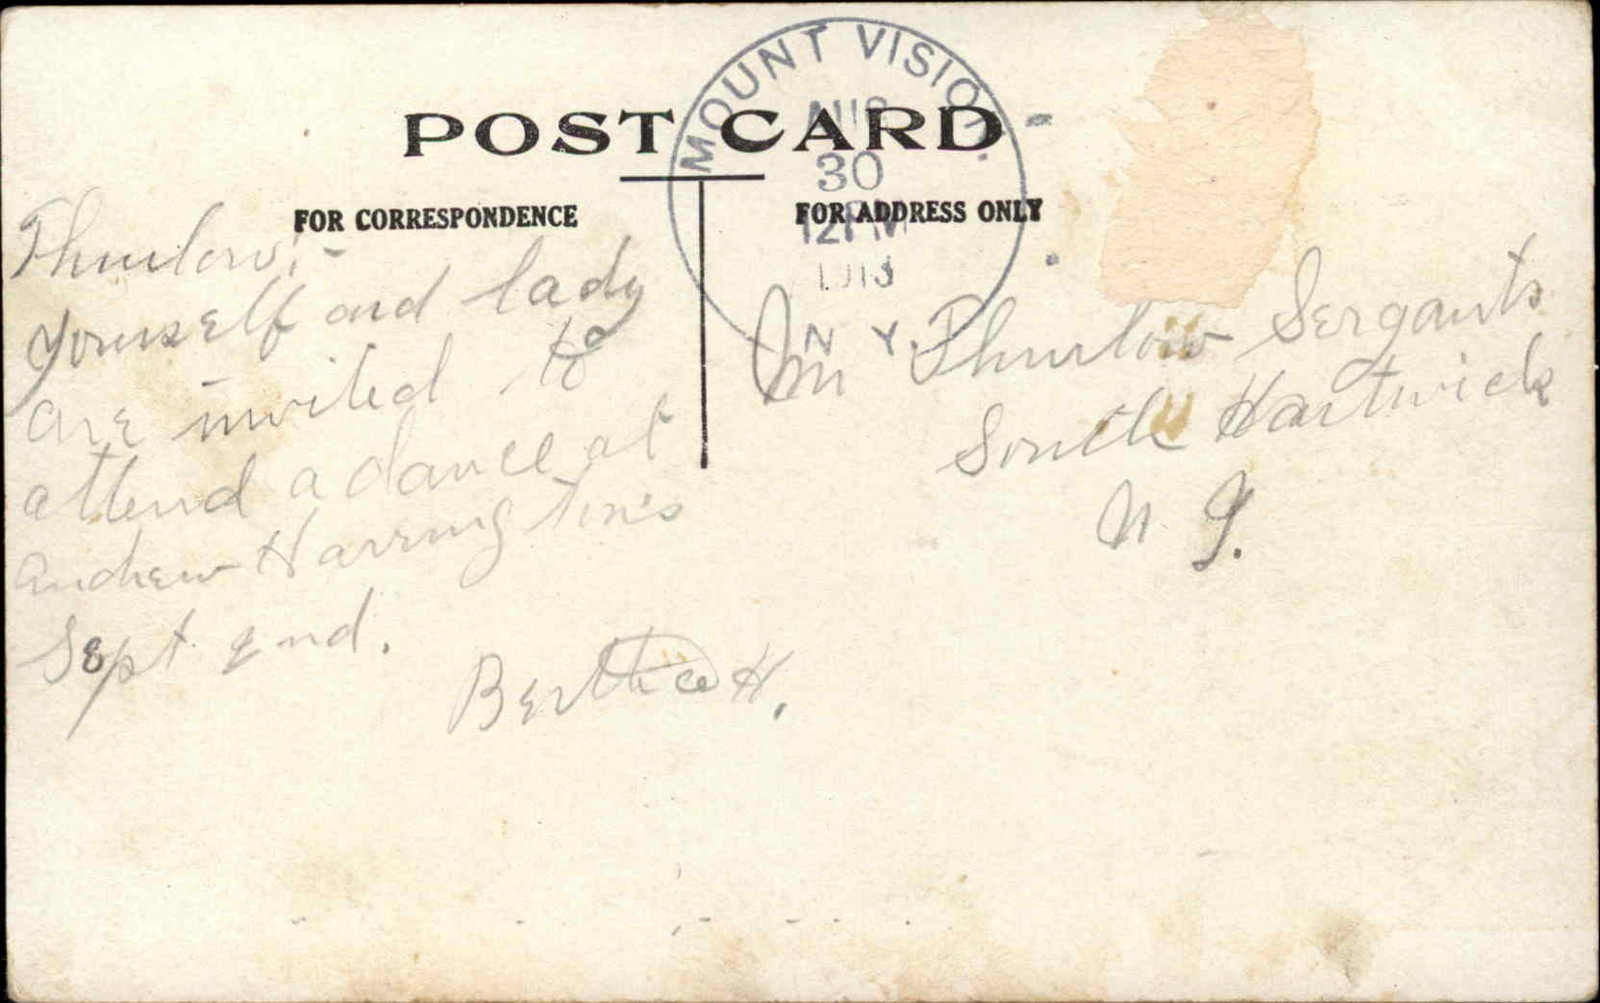 POST CARD
FOR CORRESPONDENCE
FOR ADDRESS ONLY
MOUNT VISION
AUG
30
12 PM
1913
N. Y.
Thurlow:-
Yourself and lady
are invited to
attend a dance at
Andrew Harrington's
Sept 2nd.
Bertha H.
Mr Thurlow Sergants
South Hartwick
N. Y.